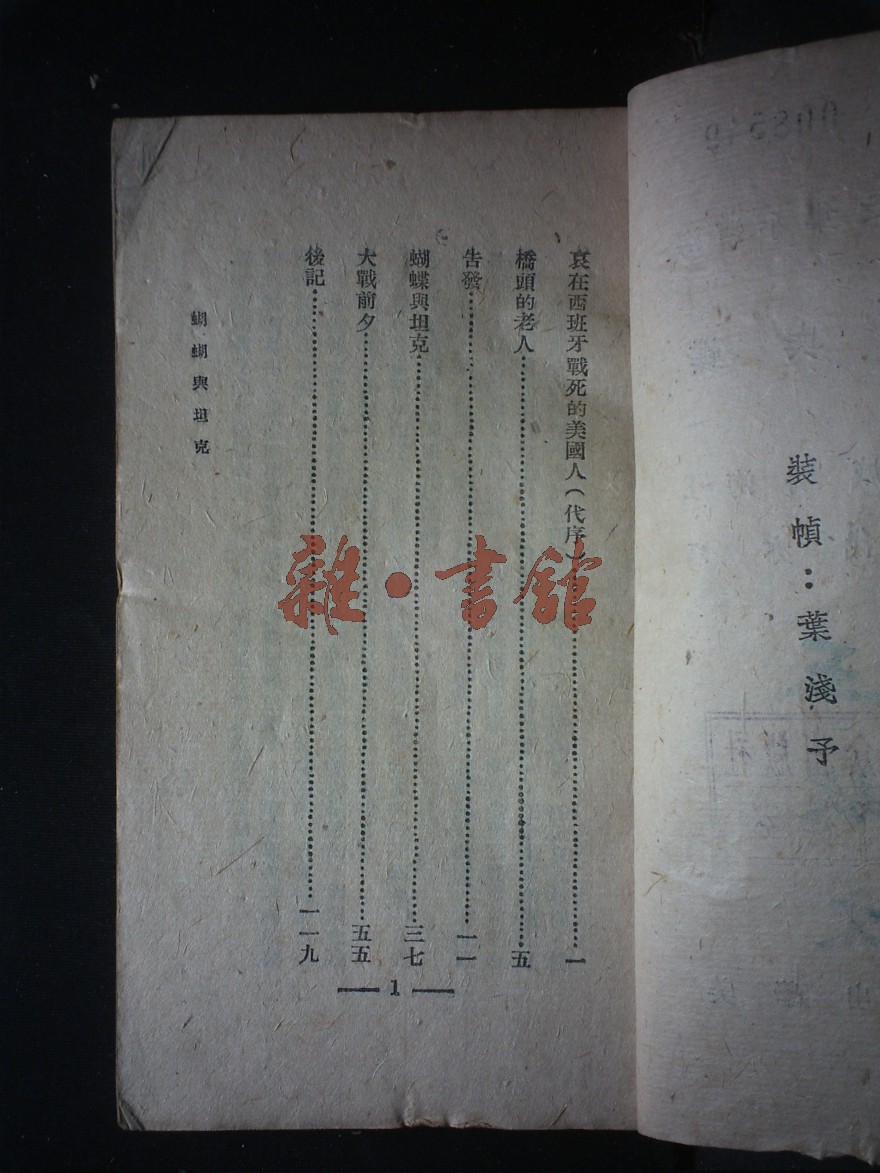 裝幀：葉淺予
哀在西班牙戰死的美國人（代序）一
橋頭的老人五
告發一一
蝴蝶與坦克三七
大戰前夕五五
後記一一九
蝴蝴與坦克
1
雜·書館